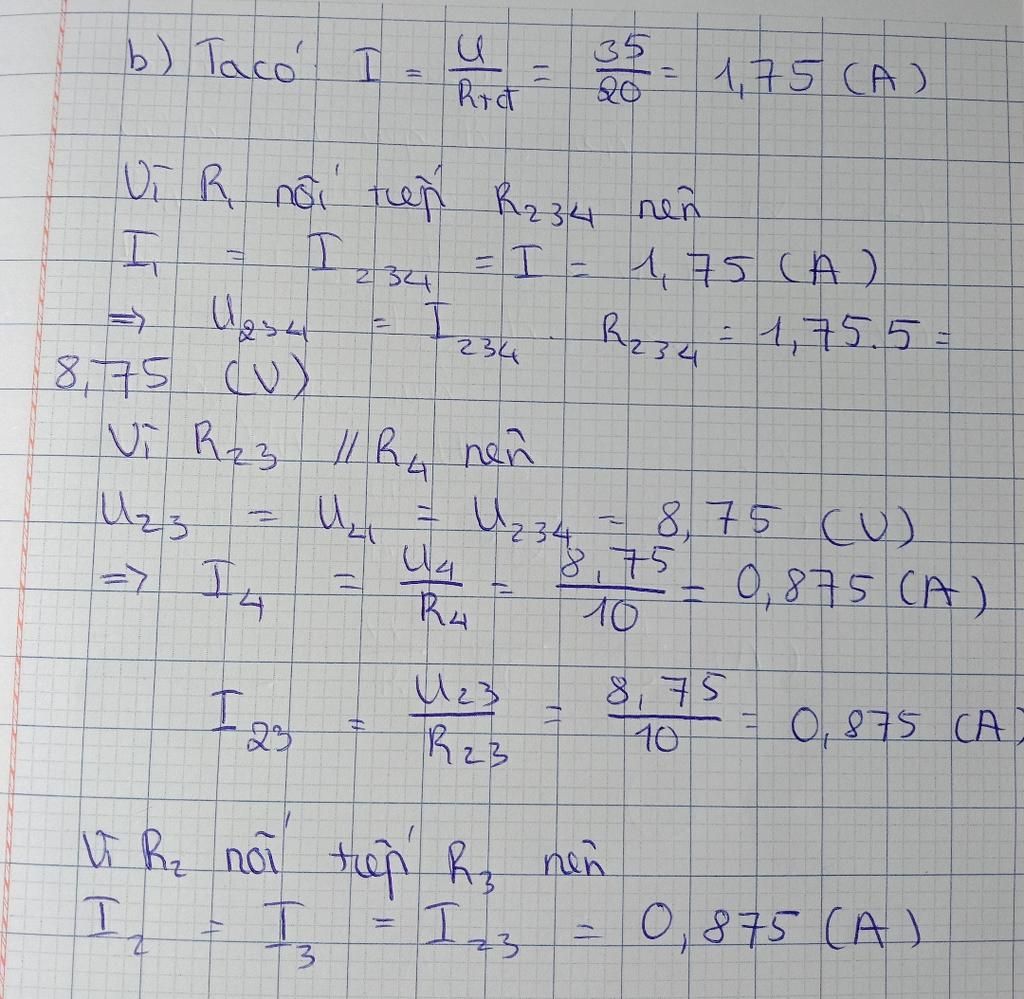 b) Ta có I = U/Rtđ = 35/20 = 1,75 (A)
Vì R1 nối tiếp R234 nên
I1 = I234 = I = 1,75 (A)
=> U234 = I234 . R234 = 1,75.5 =
8,75 (V)
Vì R23 // R4 nên
U23 = U4 = U234 = 8,75 (V)
=> I4 = U4/R4 = 8,75/10 = 0,875 (A)
I23 = U23/R23 = 8,75/10 = 0,875 (A)
Vì R2 nối tiếp R3 nên
I2 = I3 = I23 = 0,875 (A)